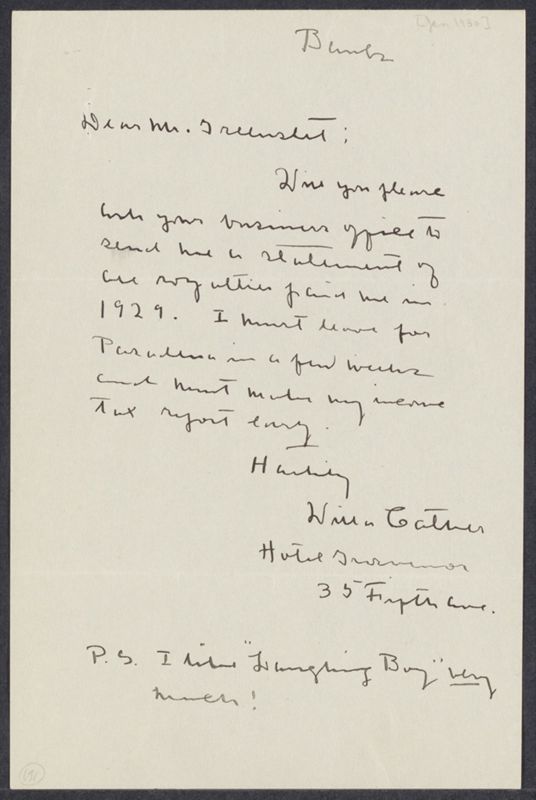 [Jan 1930]
Dear Mr. Greenslet;
Will you please
ask your business office to
send me a statement of
all royalties paid me in
1929. I must leave for
Pasadena in a few weeks
and must make my income
tax report early.
Hastily
Willa Cather
Hotel Grosvenor
35 Fifth Ave.
P.S. I like "Laughing Boy" very
much!